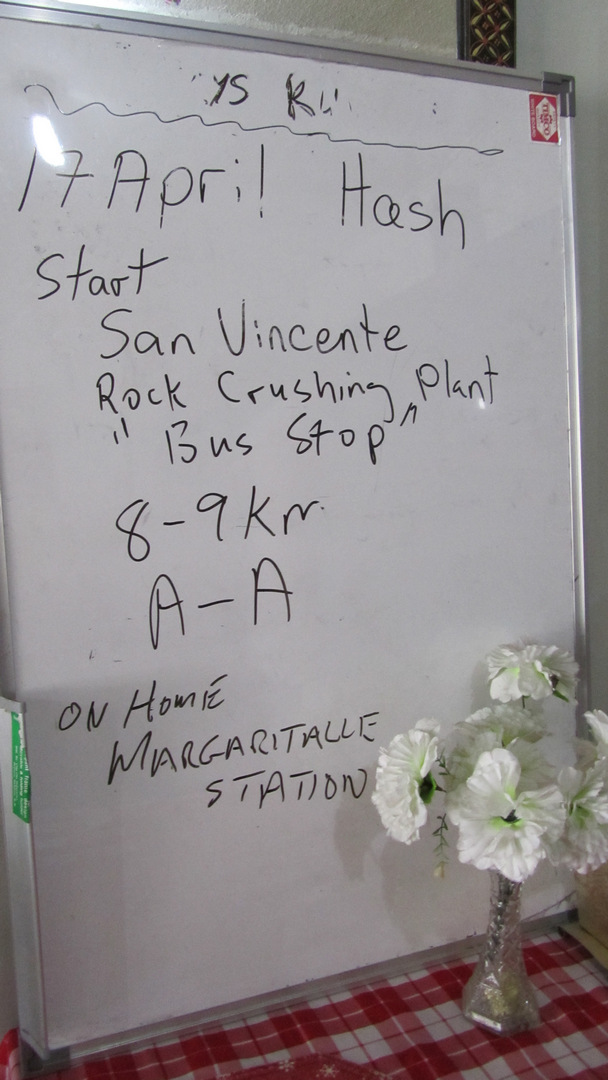 17 April Hash
Start
San Vincente
Rock Crushing Plant
"Bus Stop"
8-9 Km
A-A
ON HOME
MARGARITALLE
STATION